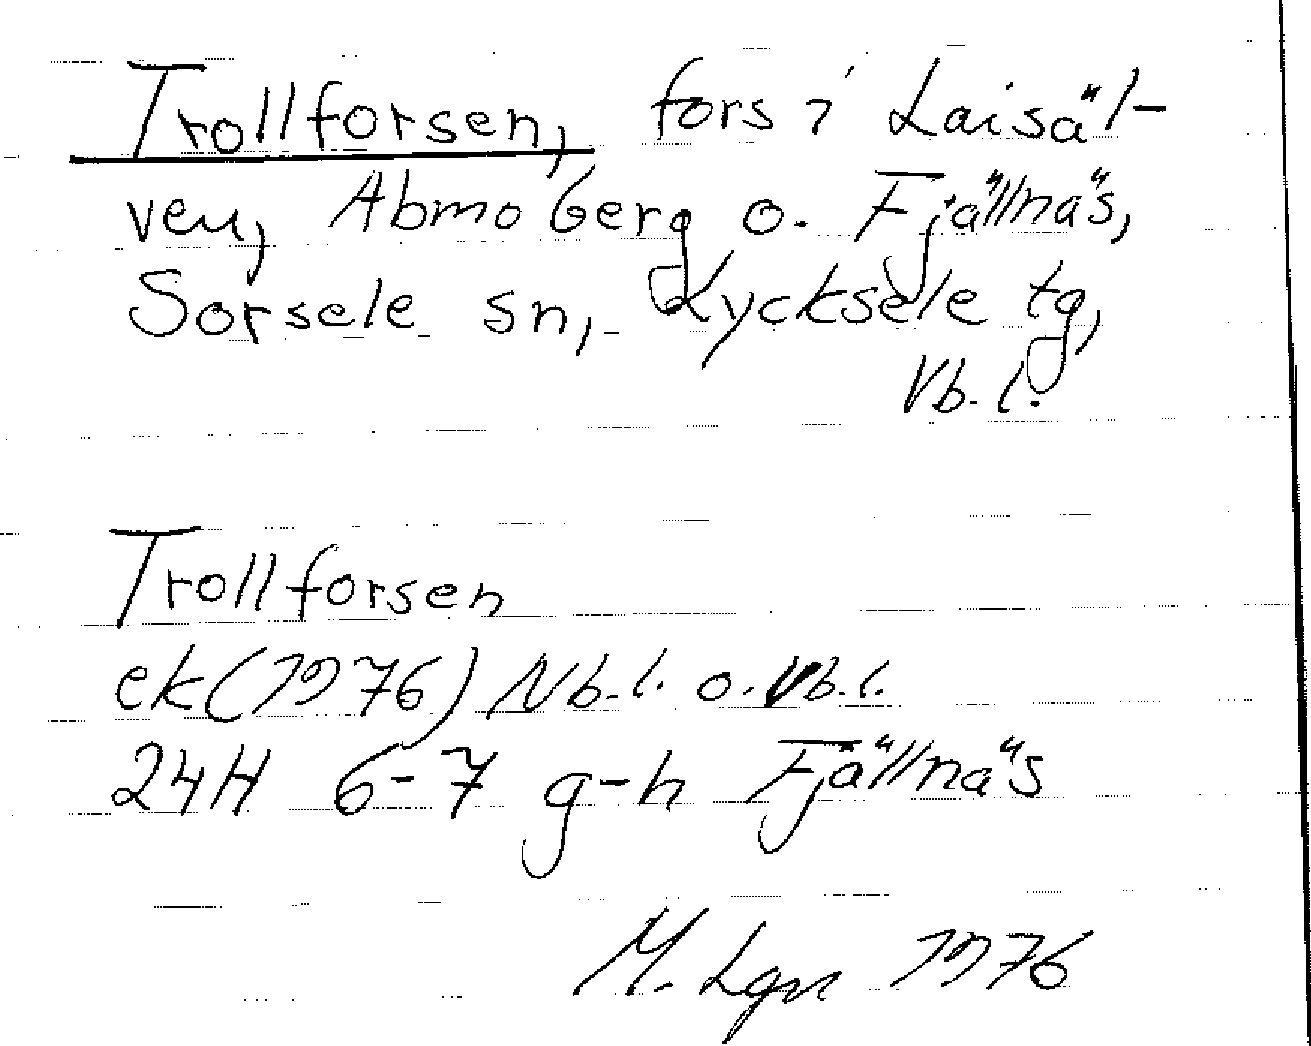 Trollforsen, fors i Laisäl-
ven, Abmoberg o. Fjällnäs,
Sorsele sn, Lycksele tg,
Vb. l.
Trollforsen
ek (1976) Nb. l. o. Vb. l.
24H 6-7 g-h Fjällnäs
M. Lgn 1976